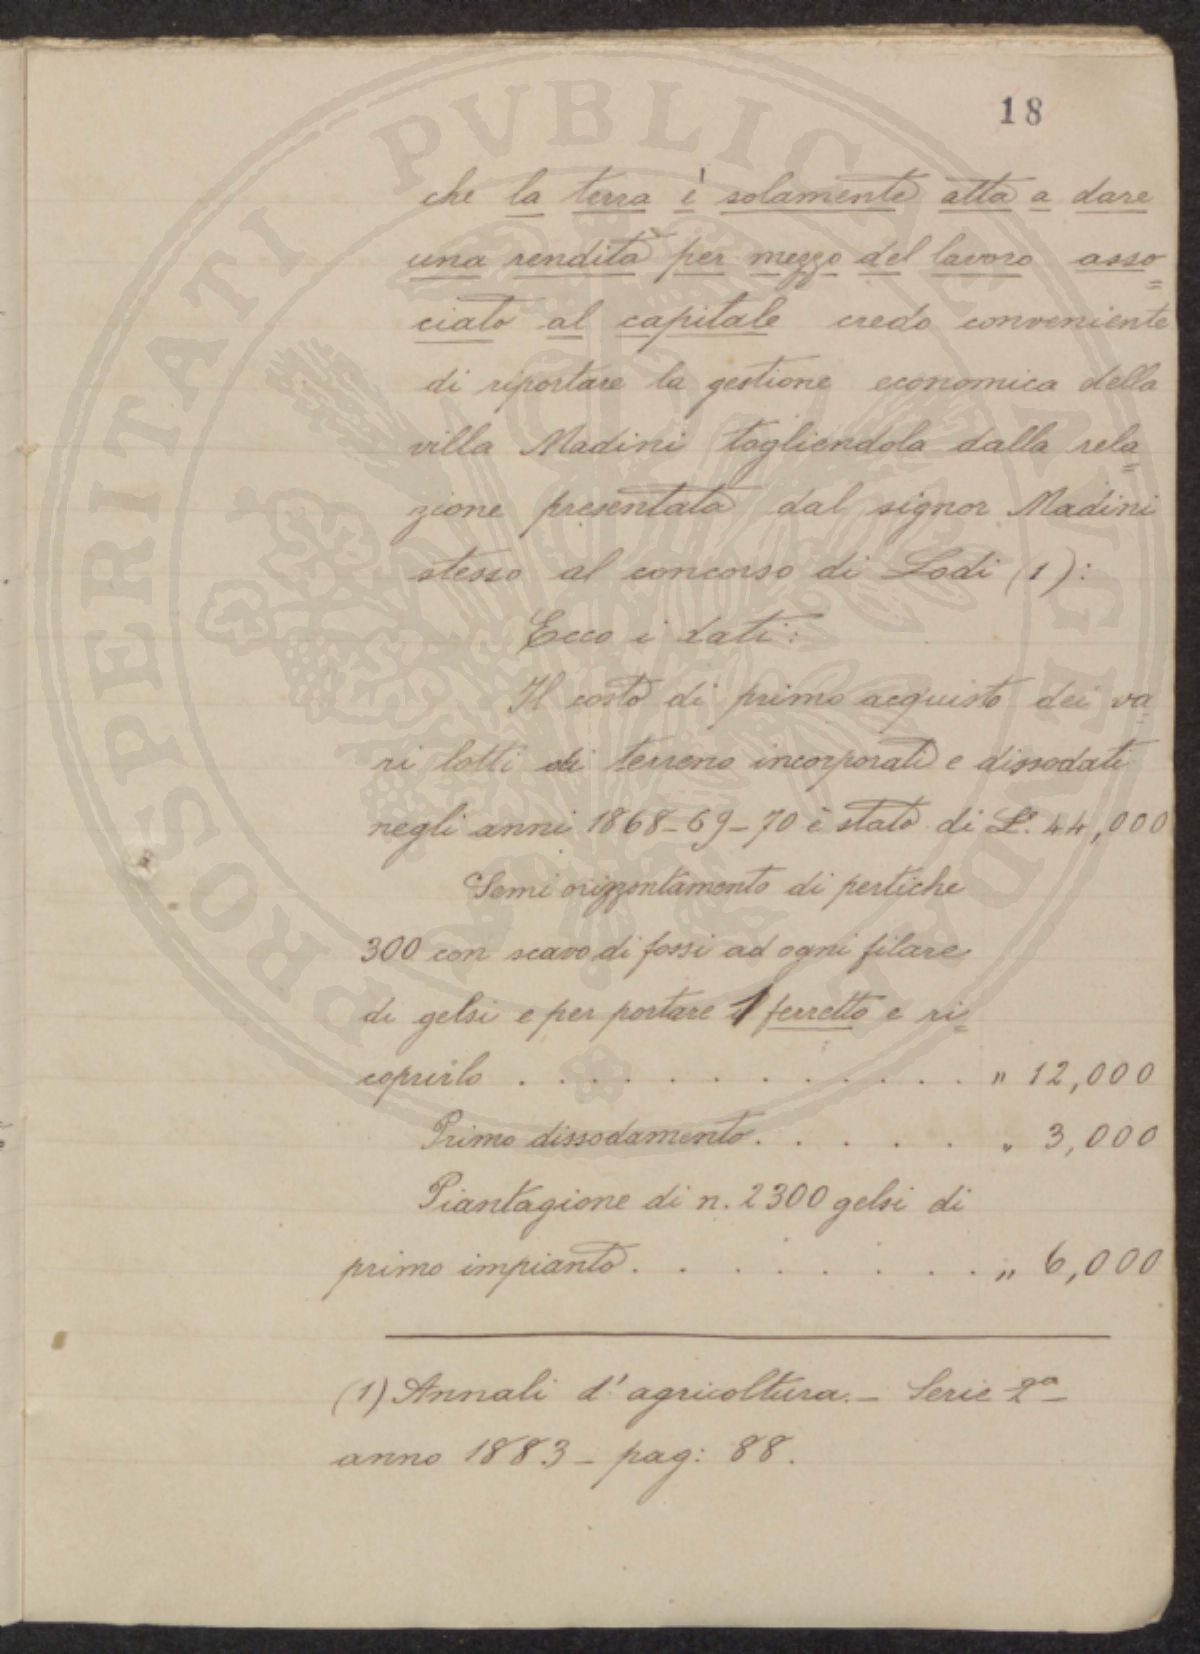 PROSPERITATI PVBLICAE AVGENDAE
18
che la terra è solamente atta a dare
una rendita per mezzo del lavoro asso=
ciato al capitale credo conveniente
di riportare la gestione economica della
villa Madini togliendola dalla rela=
zione presentata dal signor Madini
stesso al concorso di Lodi (1):
Ecco i dati:
Il costo di primo acquisto dei va
ri lotti di terreno incorporati e dissodati
negli anni 1868-69-70 è stato di L. 44,000
Semi orizzontamento di pertiche
300 con scavo di fossi ad ogni filare
di gelsi e per portare 1 ferretto e ri=
coprirlo . . . . . . . . . . . . . " 12,000
Primo dissodamento . . . . . . " 3,000
Piantagione di n. 2300 gelsi di
primo impianto . . . . . . . . . " 6,000
(1) Annali d'agricoltura. - Serie 2a -
anno 1883 - pag: 88.